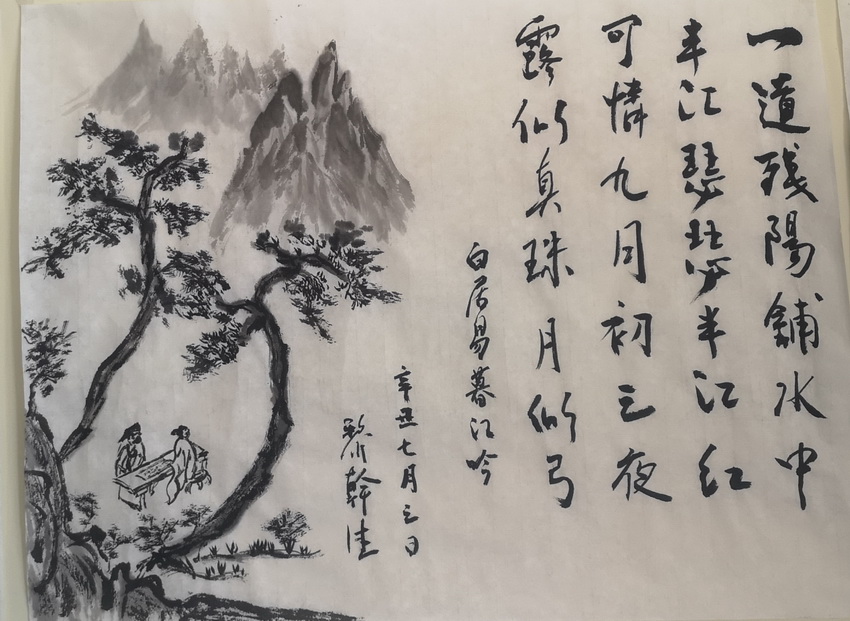 一道殘陽鋪水中
半江瑟瑟半江紅
可憐九月初三夜
露似真珠月似弓
白居易暮江吟
辛丑七月三日
黎幹佳